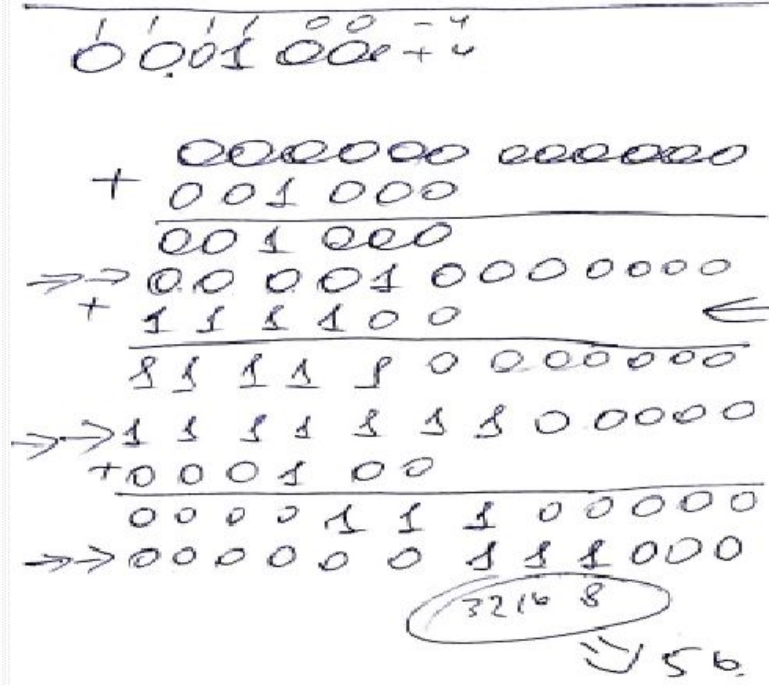 1 1 1 1 0 0 - 4
0 0 0 1 0 0 + 4
000000 000000
+ 001 000
001 000
→→ 00 001 0000000
+ 1 1 1 1 0 0
1 1 1 1 1 0 000000
→→ 1 1 1 1 1 1 1 0 0000
+ 0 0 0 1 0 0
0 0 0 0 1 1 1 00000
→→ 0 0 0 0 0 0 1 1 1 000
32 16 8
⇒ 56.